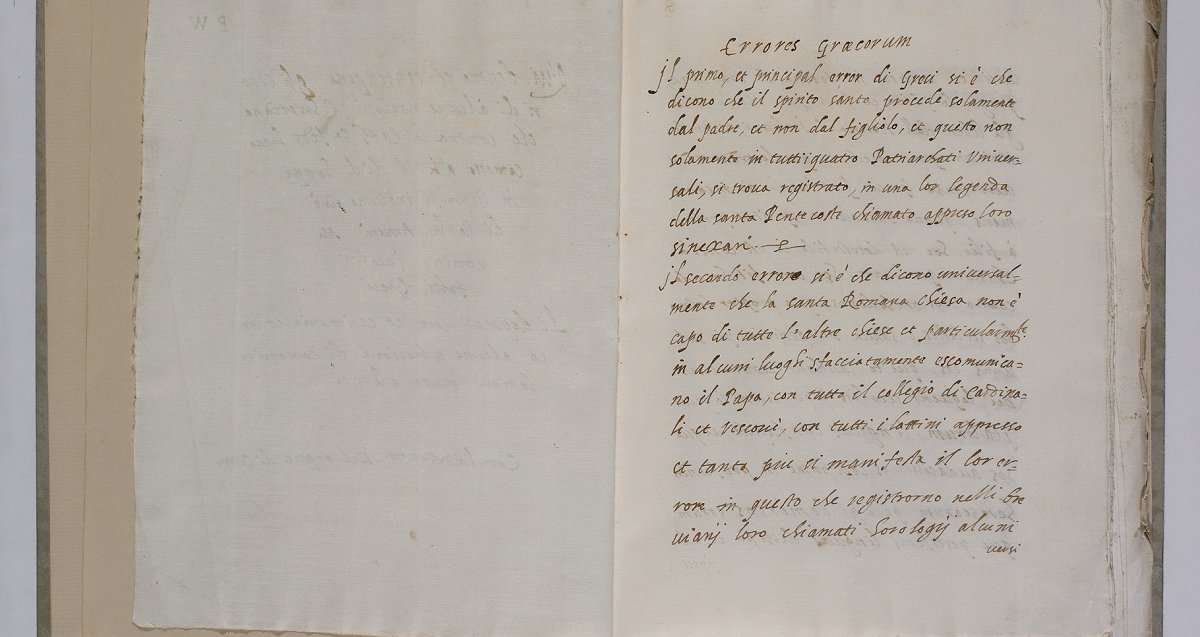 Errores Græcorum
Jl primo, et principal error di Greci si è che
dicono che il spirito santo procede solamente
dal padre, et non dal figliolo, et questo non
solamente in tutti i quatro Patriarchati Univer-
sali, si trova registrato, in una lor legenda
della santa Pentecoste chiamato appresso loro
sinexari
Jl secondo errore si é che dicono universal-
mente che la santa Romana chiesa non è
capo di tutte l'altre chiese et particularmte.
in alcuni luoghi sfacciatamente escomunica-
no il Papa, con tutto il collegio di Cardina-
li et Vescovi, con tutti i lattini appresso
et tanto piu si manifesta il lor er-
rore in questo che registrorno nelli bre
viarij loro chiamati horologij alcuni
versi